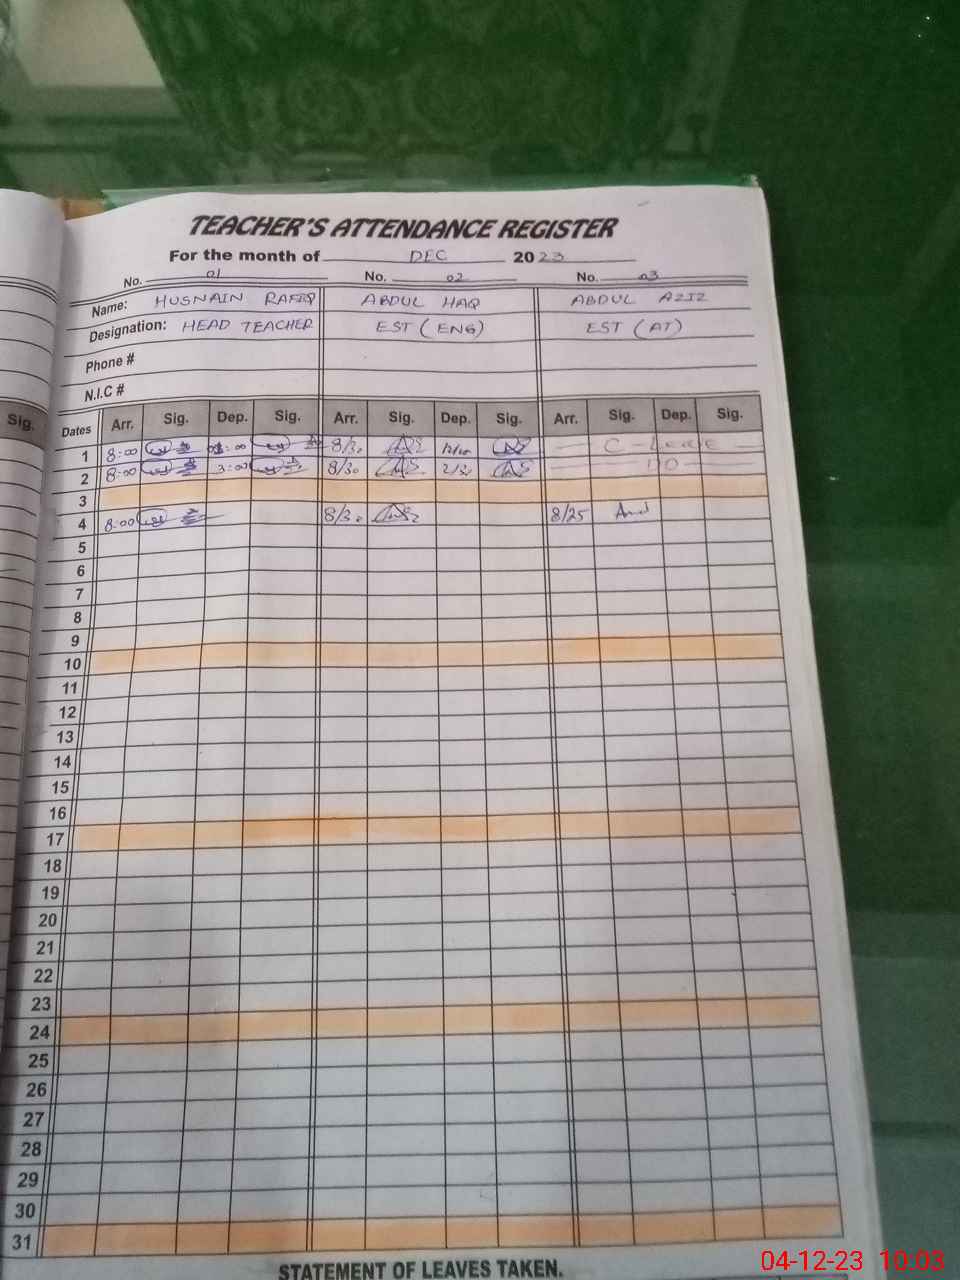 TEACHER'S ATTENDANCE REGISTER
For the month of DEC 2023
No. 01 No. 02 No. 03
Name: HUSNAIN RAFIQ ABDUL HAQ ABDUL AZIZ
Designation: HEAD TEACHER EST (ENG) EST (AT)
Phone #
N.I.C #
Sig. Dates Arr. Sig. Dep. Sig. Arr. Sig. Dep. Sig. Arr. Sig. Dep. Sig.
1 8:00 8/30 C-Leave
2 8:00 3:00 8/30 2/30 DO
3
4 8:00 8/30 8/25
5
6
7
8
9
10
11
12
13
14
15
16
17
18
19
20
21
22
23
24
25
26
27
28
29
30
31
STATEMENT OF LEAVES TAKEN.
04-12-23 10:03